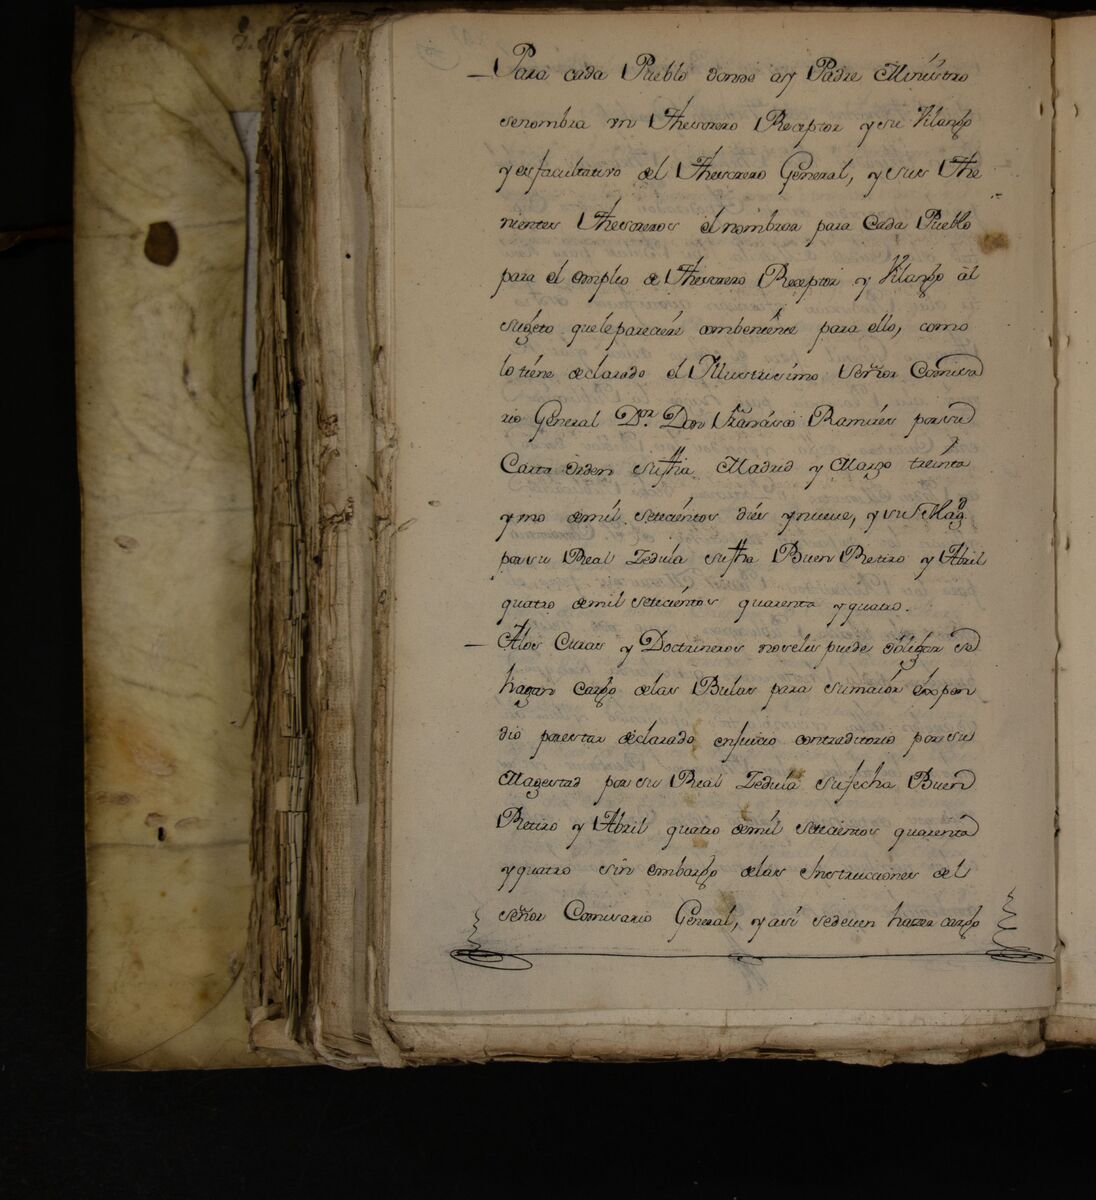 — Para cada Pueblo donde ay Padre Ministro
senombra vn Thesorero Receptor y su Filango
y es facultativo del Thesorero General, y sus The
nientes Thesoreros el nombrar para Cada Pueblo
para el empleo de Thesorero Receptor y Filango al
sugeto que le pareciere combeniente para ello, como
lo tiene declarado el Illustrisimo Señor Comissa
rio General Dor. Don Francisco Ramires por su
Carta orden su ffha Madrid y Marzo treinta
y mo de mil setecientos dies y nueue, y su Magd
por su Real Zedula su ffha Buen Retiro y Abril
quatro de mil setecientos quarenta y quatro.
— Alos Curas y Doctrineros noveles puede obligar se
hagan cargo delas Bulas para su maior expen
dio por estar declarado en juicio contraditorio por su
Magestad por su Real Zedula su fecha Buen
Retiro y Abril quatro de mil setecientos quarenta
y quatro sin embargo delas Instrucciones del
señor Comisario General, y asi se deuen hazer cargo